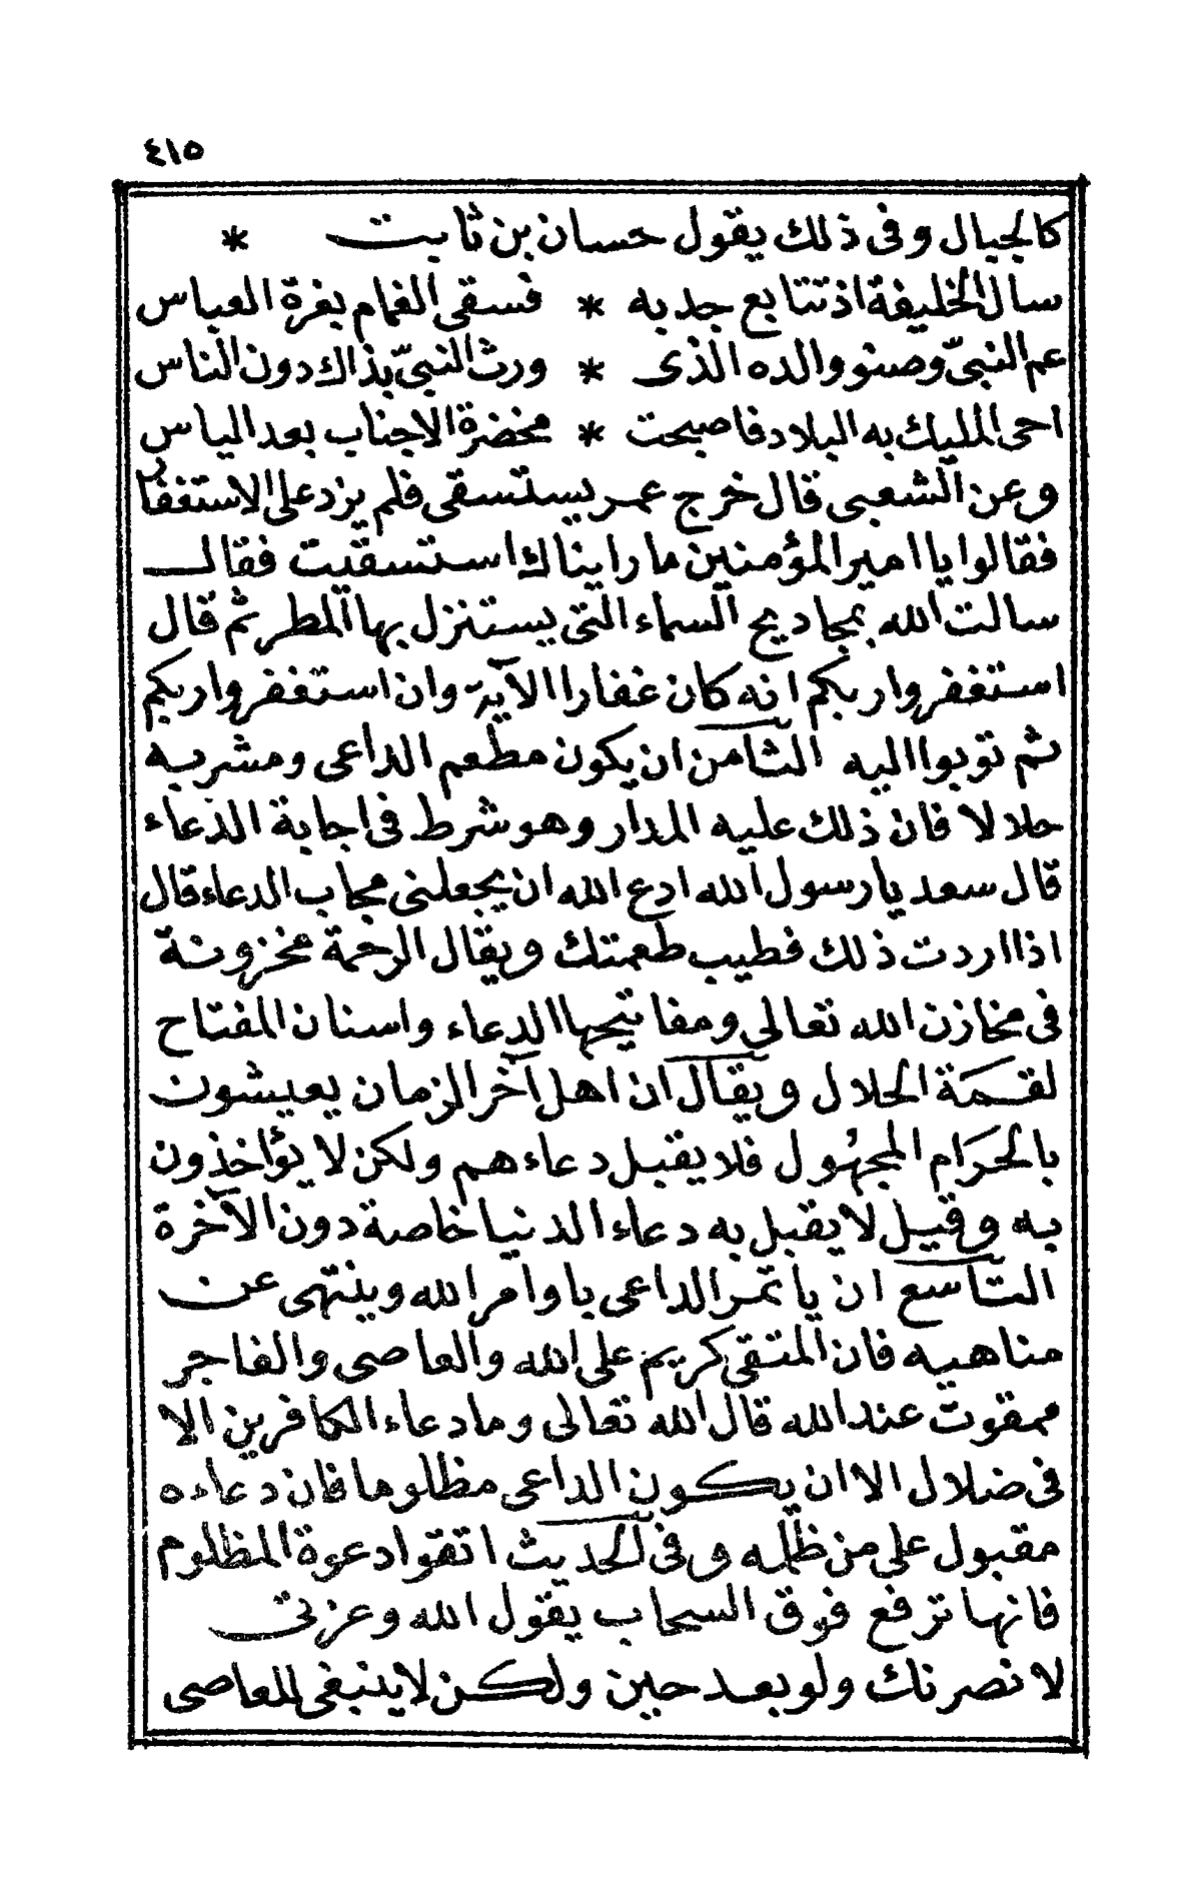 ٤١٥
كالجبال وفى ذلك يقول حسان بن ثابت *
سال الخليفة اذ تتابع جدبه * فسقى الغمام بغرة العباس
عم النبىّ وصنو والده الذى * ورث النبىّ بذاك دون الناس
احى المليك به البلاد فاصبحت * مخضرة الاجناب بعد الياس
وعن الشعبى قال خرج عمر يستسقى فلم يزد على الاستغفار
فقالوا يا امير المؤمنين ما رايناك استسقيت فقال
سالت الله بمجاديح السماء التى يستنزل بها المطر ثم قال
استغفروا ربكم انه كان غفارا الآية وان استغفروا ربكم
ثم توبوا اليه الثامن ان يكون مطعم الداعى ومشربه
حلالا فان ذلك عليه المدار وهو شرط فى اجابة الدعاء
قال سعد يا رسول الله ادع الله ان يجعلنى مجاب الدعاء قال
اذا اردت ذلك فطيب طعمتك ويقال الرحمة مخزونة
فى مخازن الله تعالى ومفاتيحها الدعاء واسنان المفتاح
لقمة الحلال ويقال ان اهل آخر الزمان يعيشون
بالحَرَام المجهُول فلا يقبل دعاءهم ولكن لا يؤاخذون
به وقيل لا يقبل به دعاء الدنيا خاصة دون الآخرة
التاسع ان ياتمر الداعى باوامر الله وينتهى عن
مناهيه فان المتقى كريم على الله والعاصى والفاجر
ممقوت عند الله قال الله تعالى وما دعاء الكافرين الا
فى ضلال الا ان يكون الداعى مظلوما فان دعاءه
مقبول على من ظلمه وفى الحديث اتقوا دعوة المظلوم
فانها ترفع فوق السحاب يقول الله وعزتى
لانصرنك ولو بعد حين ولكن لا ينبغى للعاصى